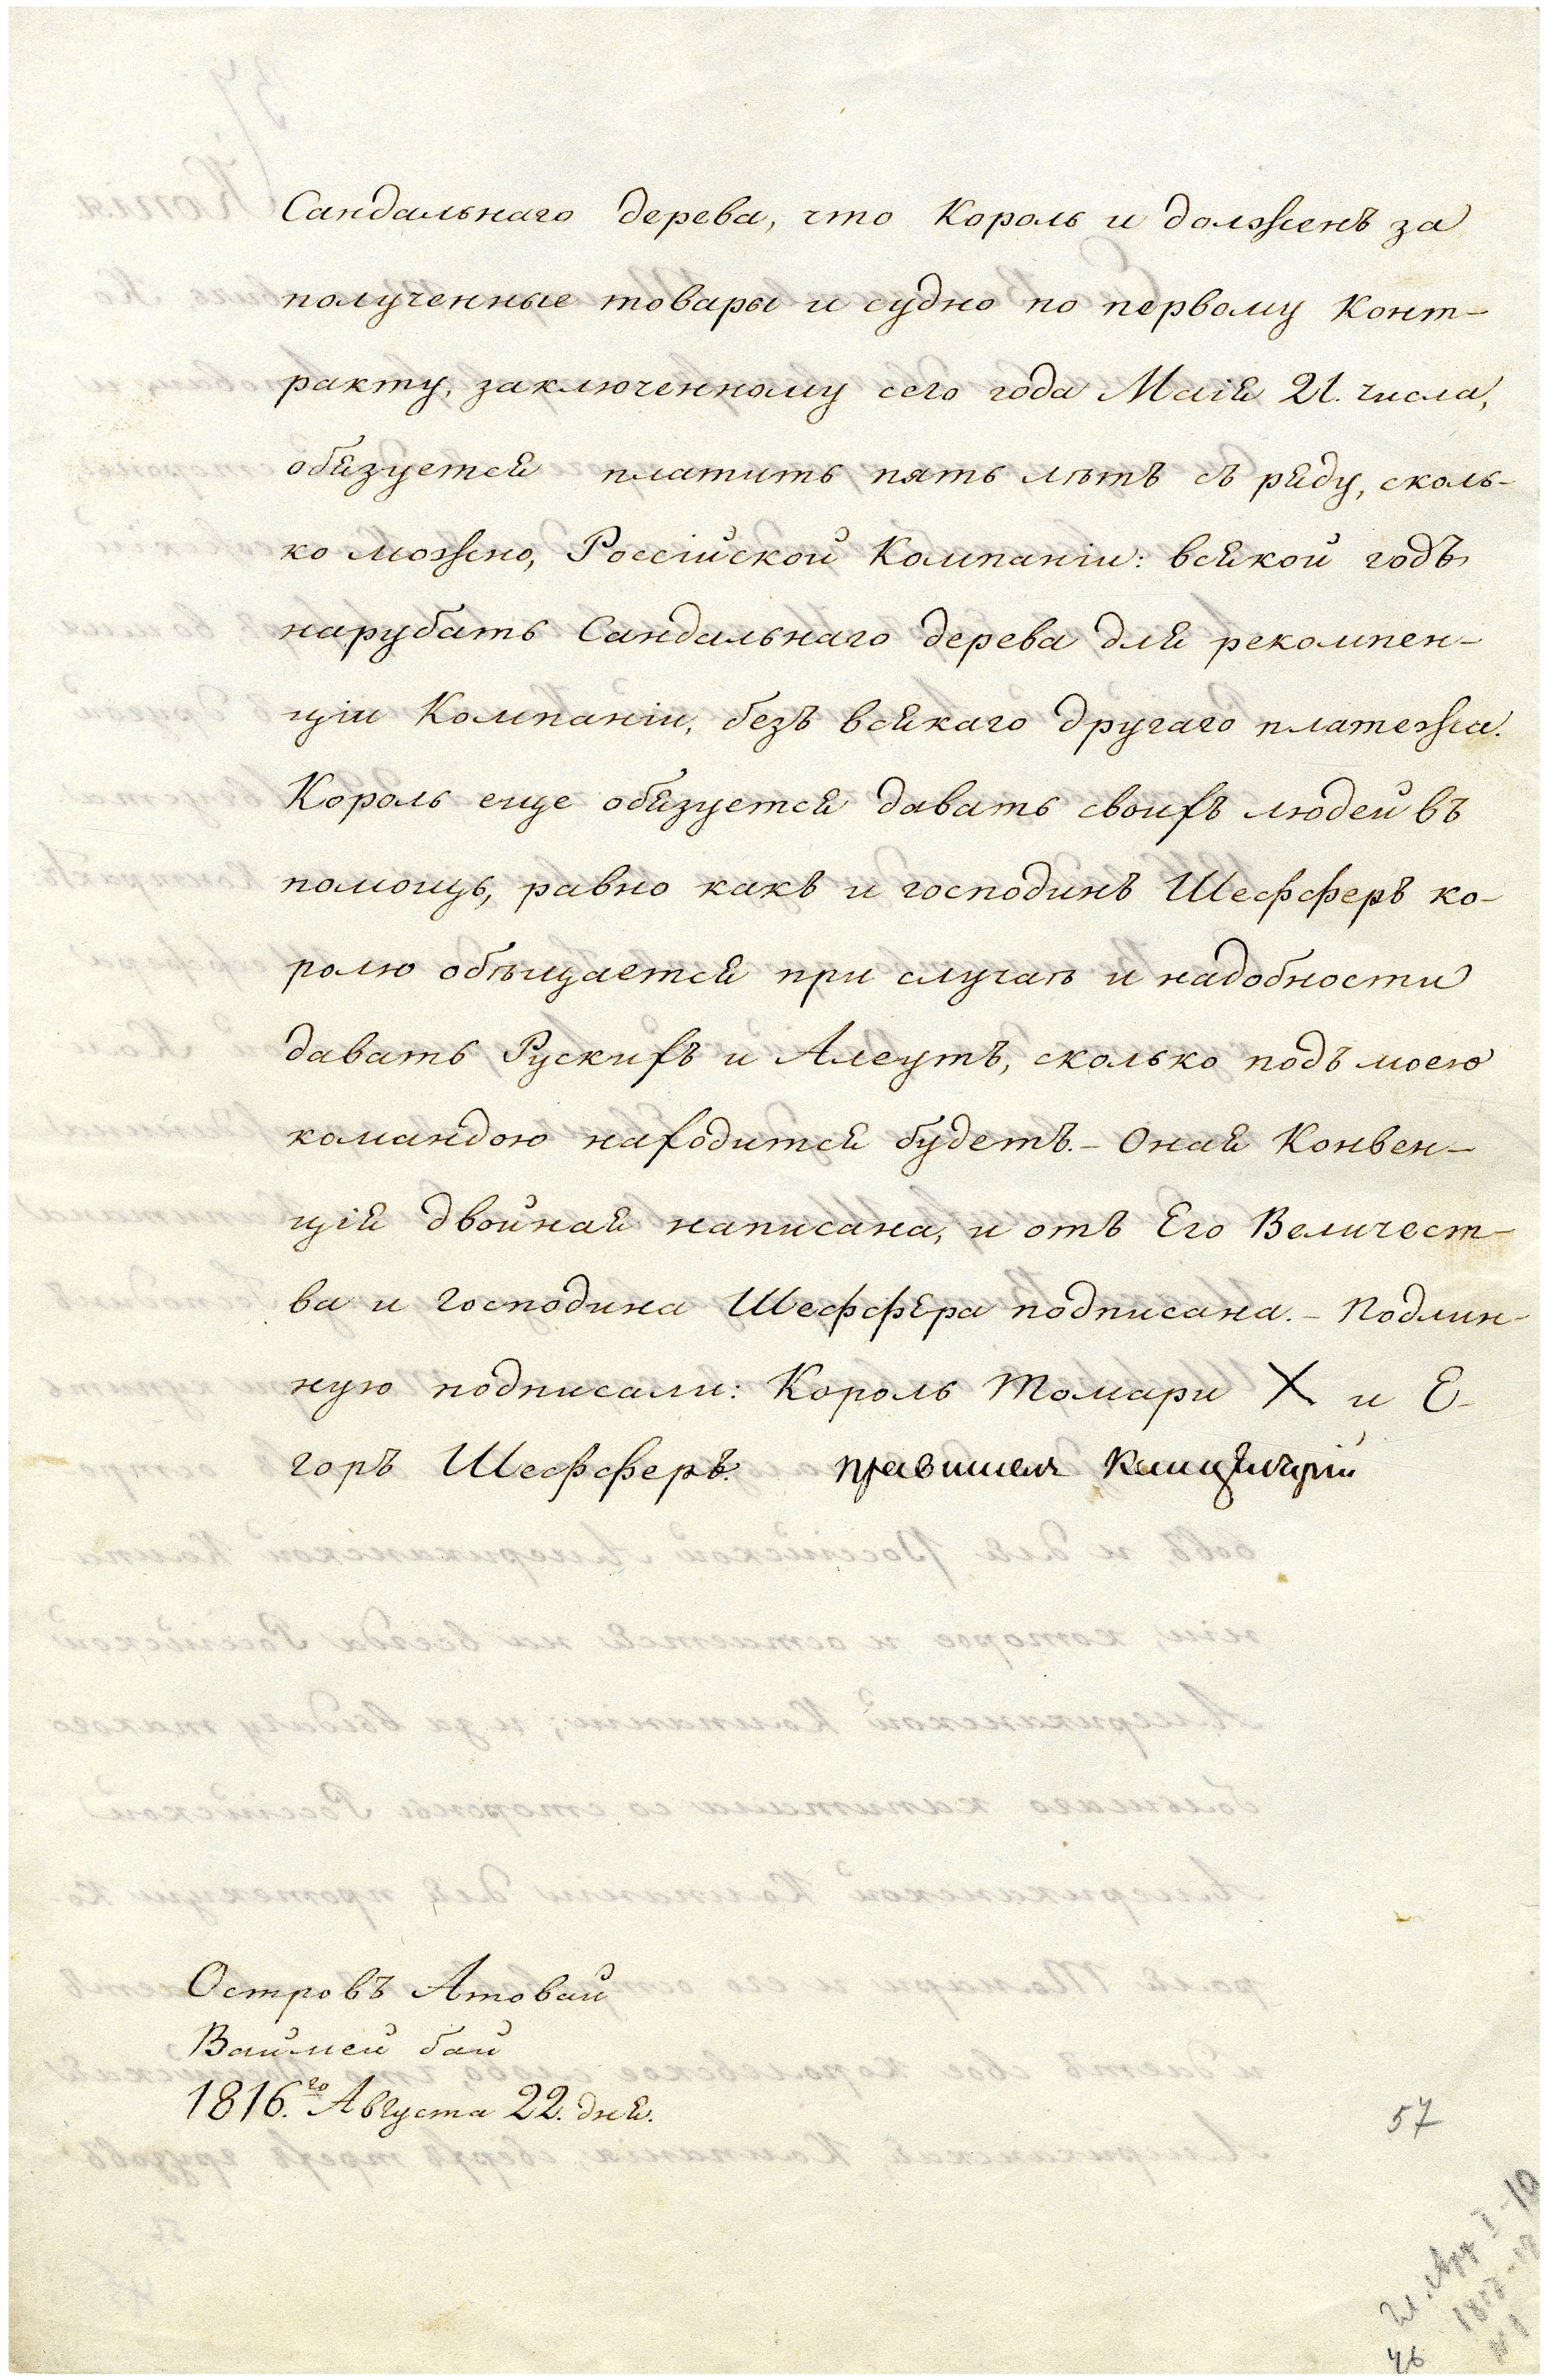 Сандальнаго дерева, что Король и долженъ за
полученные товары и судно по первому Конт-
ракту, заключенному сего года Маія 21. числа,
обязуется платить пять лѣтъ съ ряду, сколь-
ко можно, Россійской Компаніи: всякой годъ
нарубать Сандальнаго дерева для рекомпен-
ціи Компаніи, безъ всякаго другаго платежа.
Король еще обязуется давать своихъ людей въ
помощь, равно какъ и господинъ Шеффферъ ко-
ролю обѣщается при случаѣ и надобности
давать Рускихъ и Алеутъ, сколько подъ моею
командою находится будетъ. – Оная Конвен-
ція двойная написана, и отъ Его Величест-
ва и Господина Шефффера подписана. – Подлин-
ную подписали: Король Томари X и Е-
горъ Шеффферъ. Правитель Канцеляріи
Островъ Атовай
Ваймей бай
1816.го Августа 22. дня.
57
46